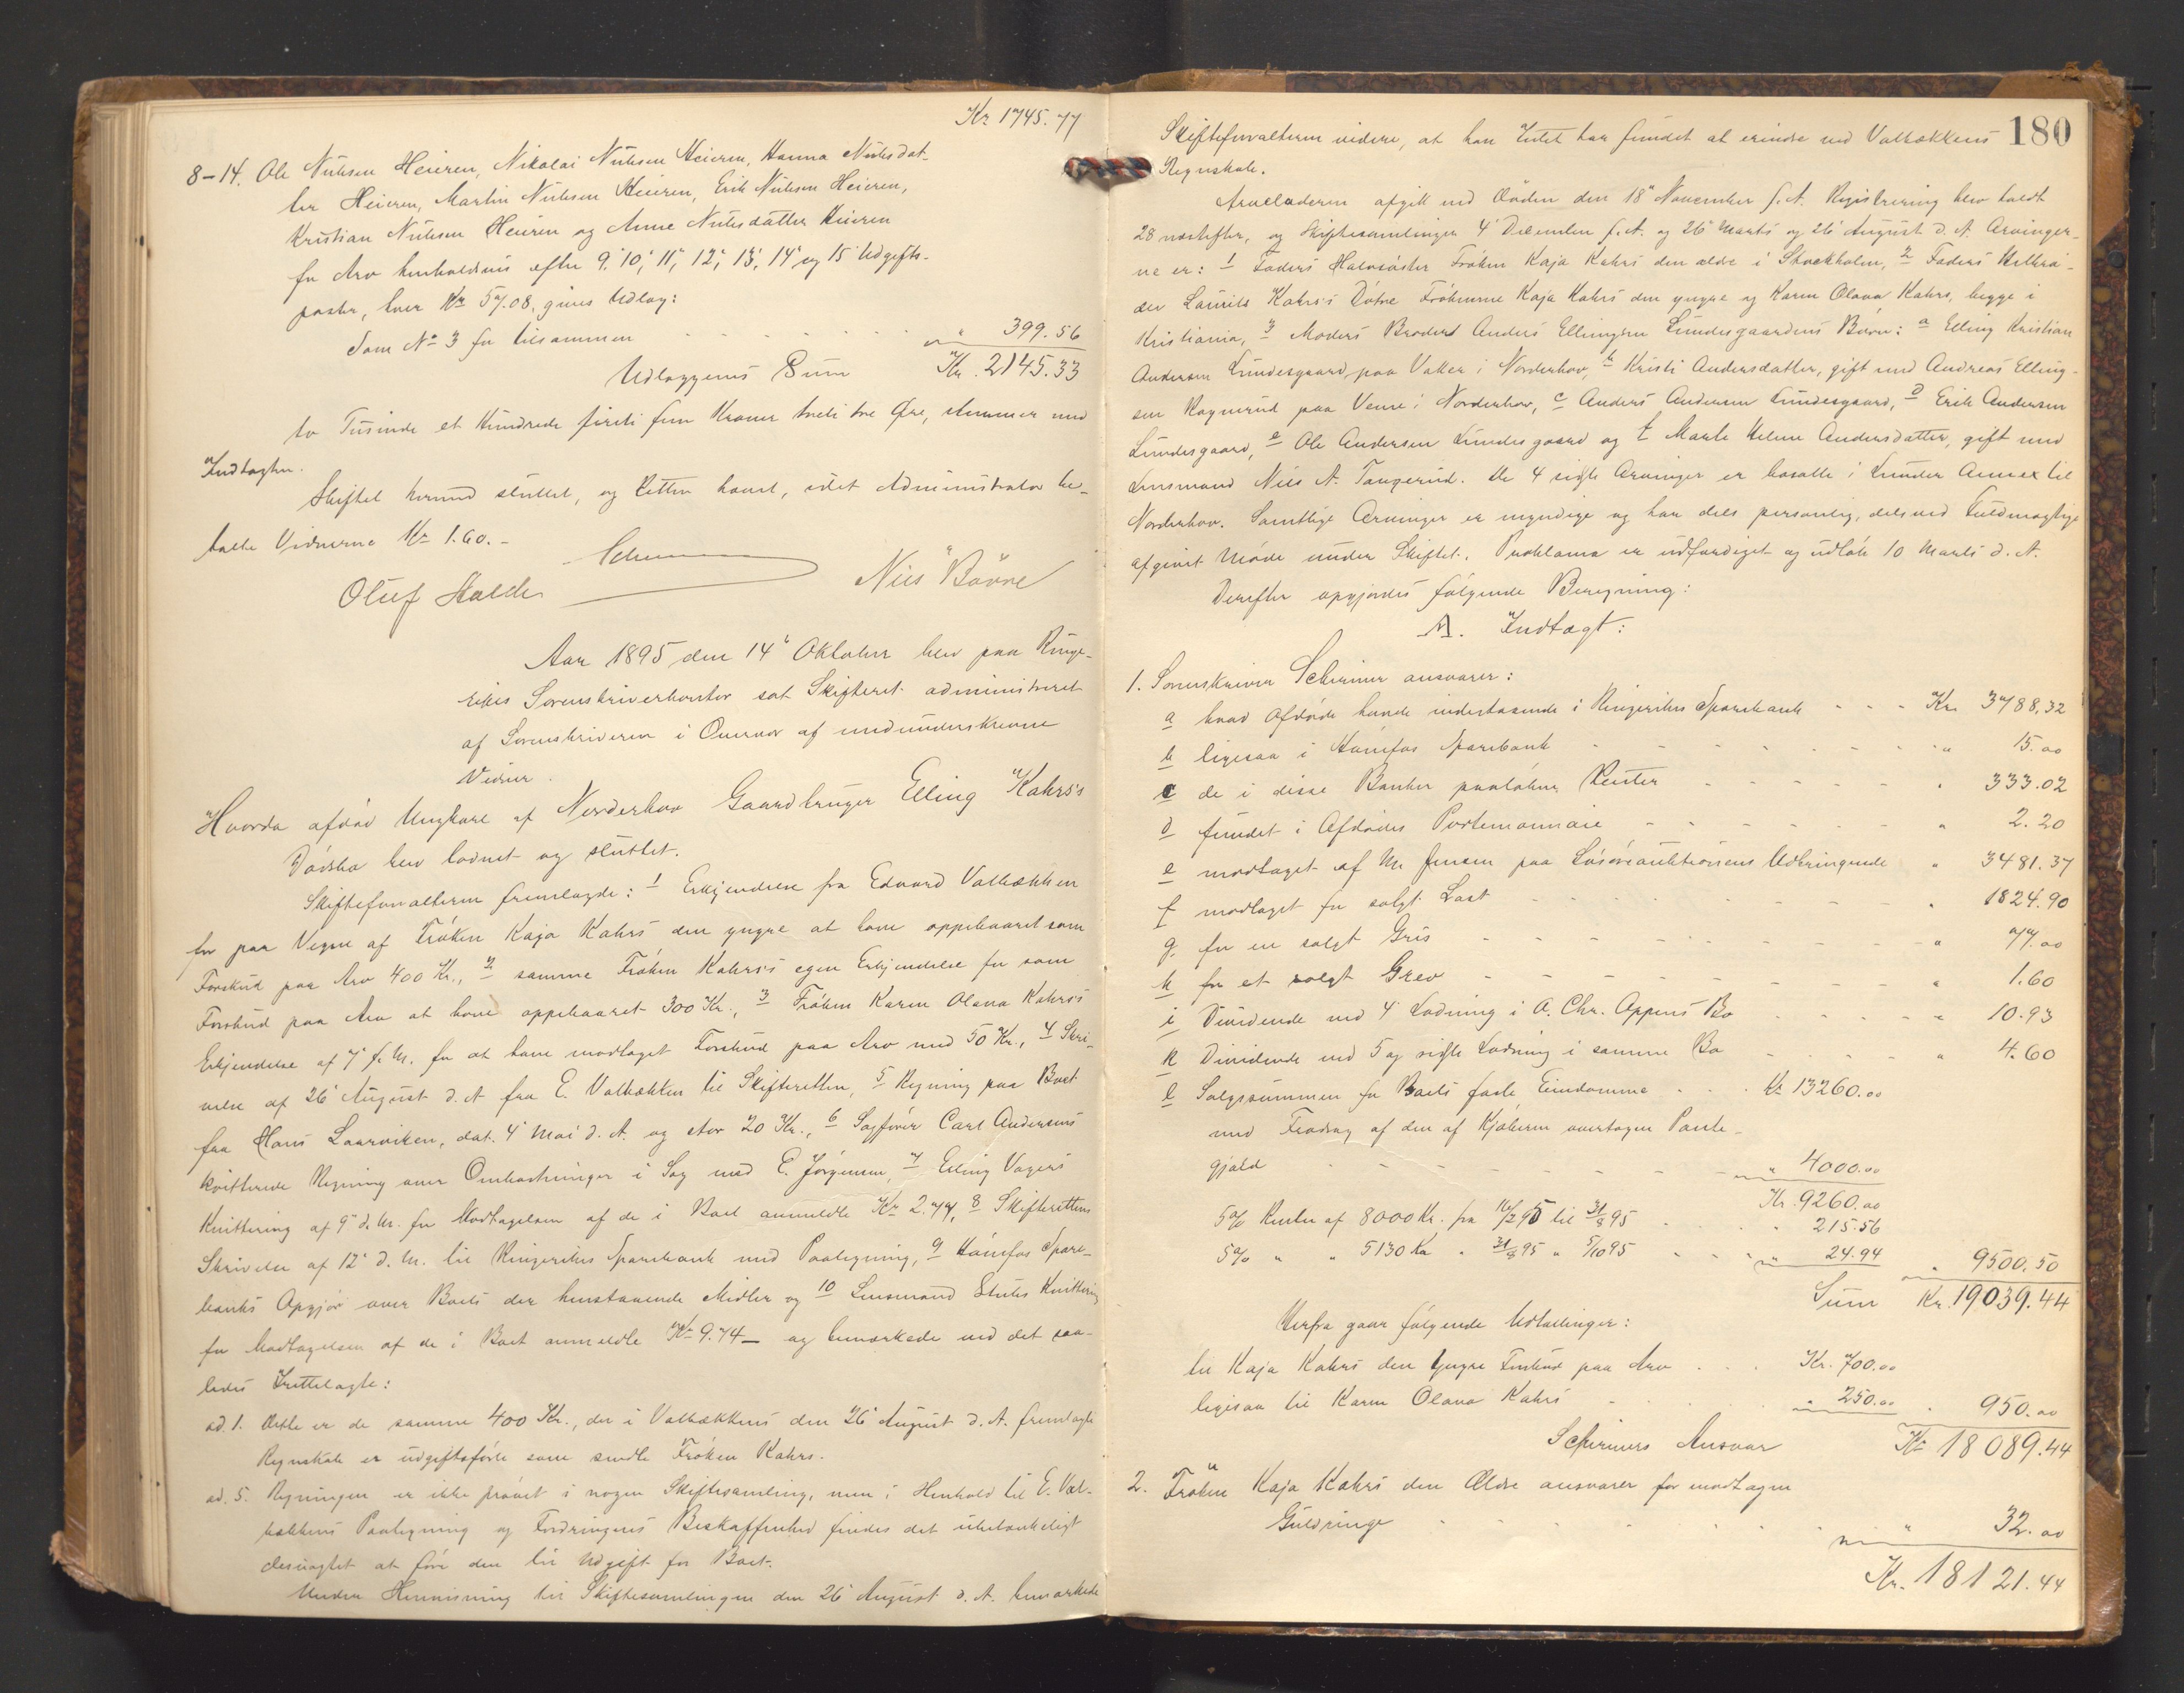 Kr 1745.77
8-14. Ole Nilsen Heieren, Nikolai Nilsen Heieren, Hanna Nilsdat-
ter Heieren, Martin Nilsen Heieren, Erik Nilsen Heieren,
Kristian Nilsen Heieren og Anne Nilsdatter Heieren
for Arv henholdsvis efter 9', 10', 11', 12', 13', 14' og 15' Udgifts-
poster, hver Kr 57.08, gives Udlæg:
Som No 3 for tilsammen " 399.56
Udlæggenes Sum Kr. 2145.33
to Tusinde et Hundrede firti fem Kroner treti tre Øre, stemmer med
Indtægten.
Skiftet hermed sluttet, og Retten hævet, idet Administrator be-
talte Vidnerne Kr 1.60.-
Schirmer
Oluf Halder Nils Bövre
Aar 1895 den 14' Oktober blev paa Ringe-
rikes Sorenskriverkontor sat Skifteret administreret
af Sorenskriveren i Overvær af medunderskrevne
Vidner.
Hvorda afdød Ungkarl af Norderhov Gaardbruger Elling Kahrs's
Dödsbo blev lodnet og sluttet.
Skifteforvalteren fremlagde: 1 Erkjendelse fra Edvard Valbækken
for paa Vegne af Fröken Kaja Kahrs den yngre at have oppebaaret som
Forskud paa Arv 400 Kr., 2 samme Fröken Kahrs's egen Erkjendelse for som
Forskud paa Arv at have oppebaaret 300 Kr., 3 Fröken Karen Olava Kahrs's
Erkjendelse af 7' f. M. for at have modtaget Forskud paa Arv med 50 Kr., 4 Skri-
velse af 26' August d. A. fra E. Valbækken til Skifteretten, 5 Regning paa Boet
fra Hans Laarviken, dat. 4' Mai d. A. og stor 20 Kr., 6 Sagförer Carl Andersens
kvitterede Regning over Omkostninger i Sag med E. Jörgensen, 7 Elling Vagers
Kvittering af 9' d. M. for Modtagelsen af de i Boet anmeldte Kr 2.77, 8 Skifterettens
Skrivelse af 12' d. M. til Ringerikes Sparebank med Paategning, 9 Hönefos Spare-
banks Opgjör over Boets der henstaaende Midler og 10 Lensmand Stules Kvittering
for Modtagelsen af de i Boet anmeldte Kr 9.74 - og bemærkede ved det saa-
ledes Irettelagte:
ad. 1. Dette er de samme 400 Kr., der i Valbækkens den 26' August d. A. fremlagte
Regnskab er udgiftsförte som sendte Fröken Kahrs.
ad. 5. Regningen er ikke prövet i nogen Skiftesamling, men i Henhold til E. Val-
bækkens Paategning og Fordringens Beskaffenhed findes det ubetænkeligt
desuagtet at före den til Udgift for Boet.
Under Henvisning til Skiftesamlingen den 26' August d. A. bemærkede
180
Skifteforvalteren videre, at han Intet har fundet at erindre ved Valbækkens
Regnskab.
Arveladeren afgik ved Döden den 18' November f. A. Registrering blev holdt
28 næstefter, og Skiftesamlinger 4' December f. A. og 26' Marts og 26' August d. A. Arvinger-
ne er: 1 Faders Halvsöster Fröken Kaja Kahrs den ældre i Stockholm, 2 Faders Halvbrö-
der Laurits Kahrs's Dötre Frökenerne Kaja Kahrs den yngre og Karen Olava Kahrs, begge i
Kristiania, 3 Moders Broder Anders Ellingsen Lundesgaardens Börn: a Elling Kristian
Andersen Lundesgaard paa Vaker i Norderhov, b Kristi Andersdatter, gift med Andreas Elling-
sen Rognerud paa Veme i Norderhov, c Anders Andersen Lundesgaard, d Erik Andersen
Lundesgaard, e Ole Andersen Lundesgaard og f Marte Helene Andersdatter, gift med
Lensmand Nils A. Tangerud. De 4 sidste Arvinger er bosatte i Lunder Annex til
Norderhov. Samtlige Arvinger er myndige og har dels personlig, dels ved Fuldmægtige
afgivet Möde under Skiftet. Proklama er udfærdiget og udlöb 10 Marts d. A.
Derefter opgjordes fölgende Beregning:
A. Indtægt:
1. Sorenskriver Schirmer ansvarer:
a hvad Afdöde havde indestaaende i Ringerikes Sparebank - - - Kr. 3788,32
b ligesaa i Hönefos Sparebank " 15.00
c de i disse Banker paalöbne Renter " 333.02
d fundet i Afdödes Portemonnaie " 2.20
e modtaget af Mr Jensen paa Lösöreauktionens Udbringende " 3481.37
f modtaget for solgt Last " 1824.90
g, for en solgt Gris " 77.00
h for et solgt Grev " 1.60
i Dividende ved 4' Lodning i A. Chr. Appens Bo " 10.93
k Dividende ved 5 og sidste Lodning i samme Bo " 4.60
l Salgssummen for Boets faste Eiendomme Kr 13260.00
med Fradrag af den af Kjöberen overtagne Pante-
gjæld " 4000.00
Kr. 9260.00
5% Renter af 8000 Kr. fra 16/2 95 til 31/8 95 " 215.56
5% " " 5130 Kr " 31/8 95 " 5/10 95 " 24.94 " 9500.50
Sum Kr. 19039.44
Herfra gaar fölgende Udtællinger:
til Kaja Kahrs den yngre Forskud paa Arv Kr. 700.00
ligesaa til Karen Olava Kahrs " 250.00 " 950.00
Schirmers Ansvar Kr 18089.44
2. Fröken Kaja Kahrs den Ældre ansvarer for modtagen
Guldringe " 32.00
Kr. 18121.44